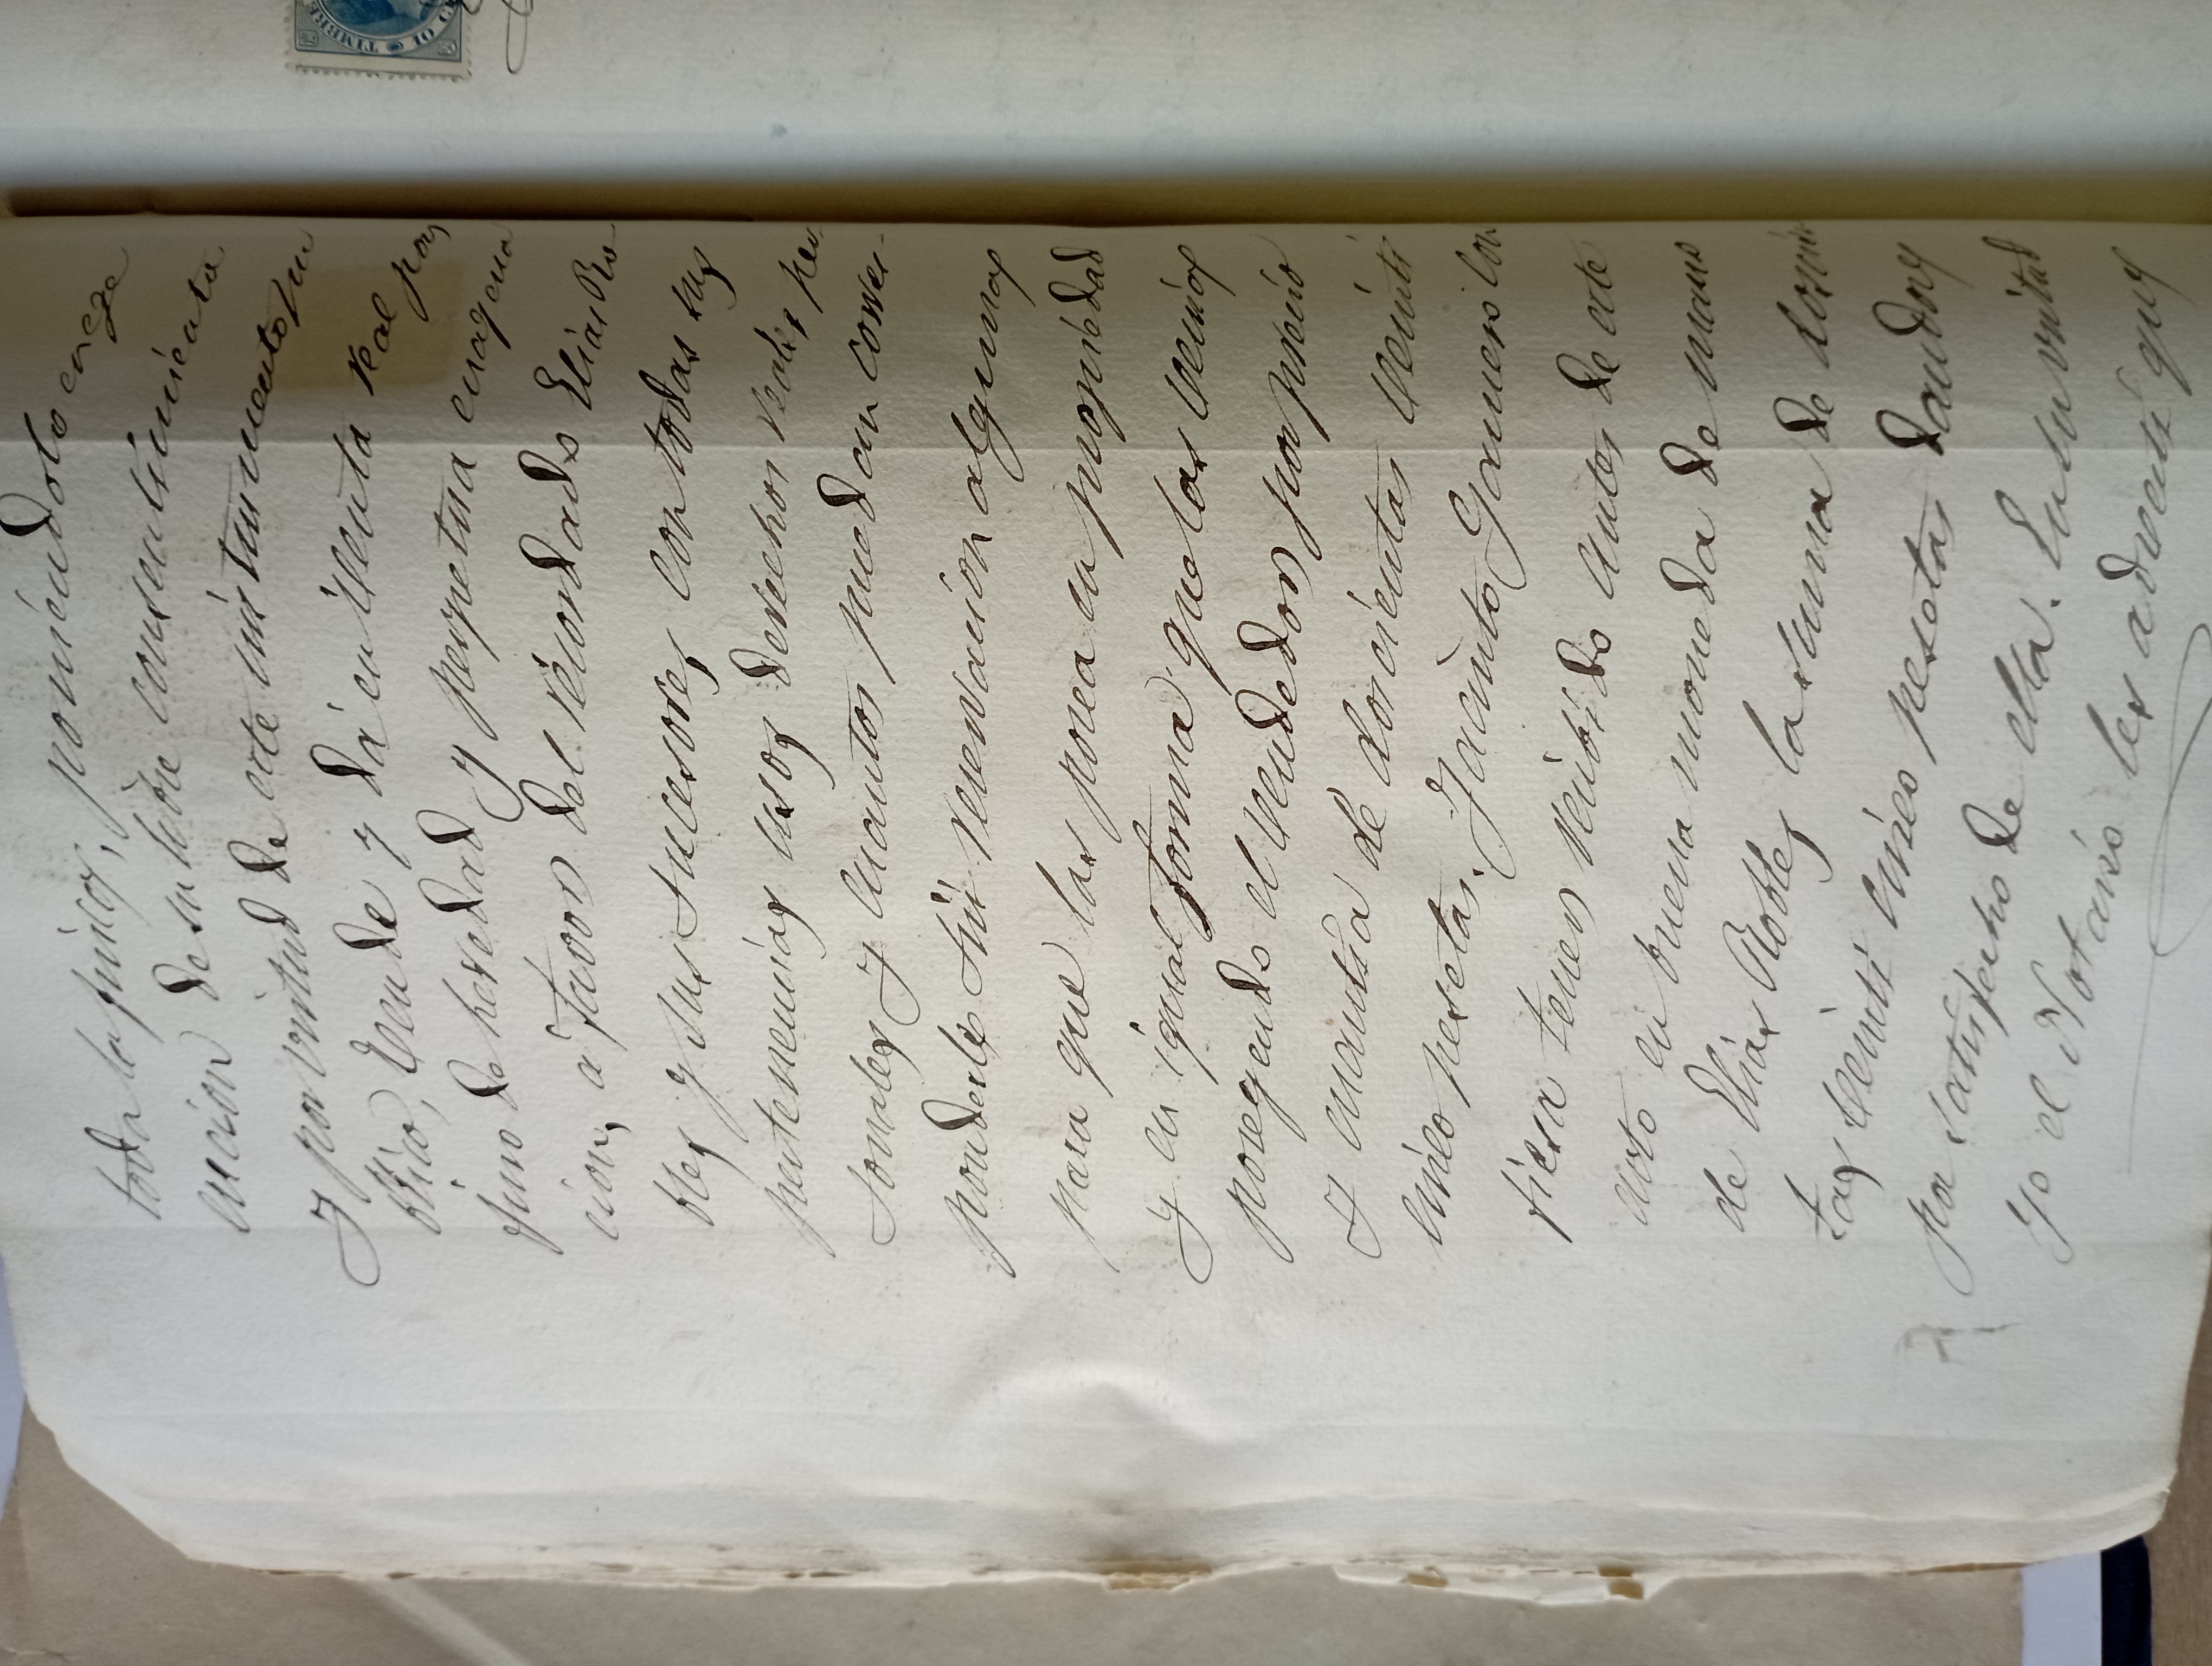 toda la finca, poniéndolo en eje
cucion de su libre consentimiento
y por virtud de este instrumento pu
blico, Vende y dá en Venta real por
juro de heredad y perpetua enagena
cion, á favor del recordado Elias Ro
bles y sus sucesores, con todas sus
pertenencias usos derechos reales, per-
sonales y cuantos puedan corres-
ponderle sin reservacion alguna
para que las posea en propiedad
y en igual forma que las Venia
poseyendo el Vendedor por precio
y cuantía de doscientas Veinti
cinco pesetas. Jacinto Gamero con
fiesa tener recibido antes de este
acto en buena moneda de mano
de Elias Robles la suma de doscien
tas Veinti cinco pesetas dandose
por satisfecho de ella. En su virtud
yo el Notario les adverti que
TIMBRE
10 C